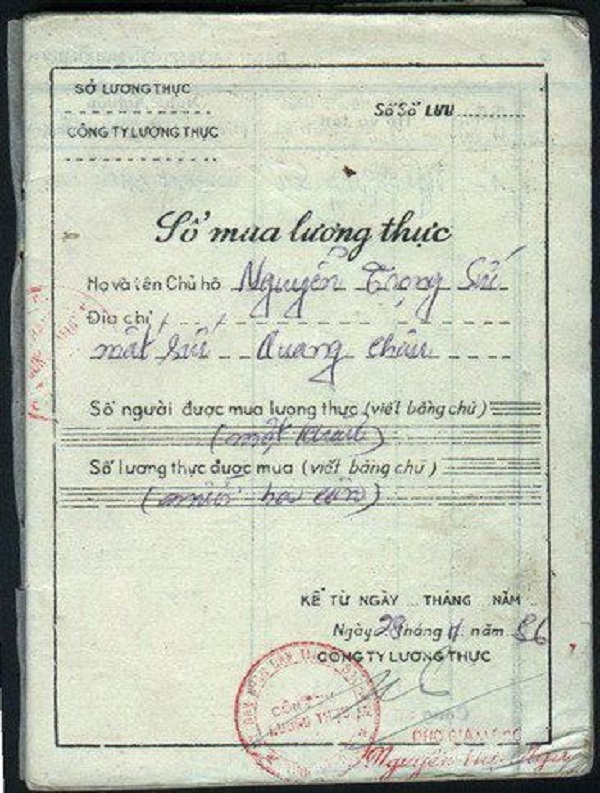 SỞ LƯƠNG THỰC
CÔNG TY LƯƠNG THỰC
Số Sổ LƯU
Sổ mua lương thực
Họ và tên Chủ hộ Nguyễn Trọng Sử
Địa chỉ
Quang Châu
Số người được mua lương thực (viết bằng chữ)
(một
Số lương thực được mua (viết bằng chữ)
(mười ba cân)
KỂ TỪ NGÀY THÁNG NĂM
Ngày 28 tháng 11 năm 86
CÔNG TY LƯƠNG THỰC
PHÓ GIÁM ĐỐC
Nguyễn